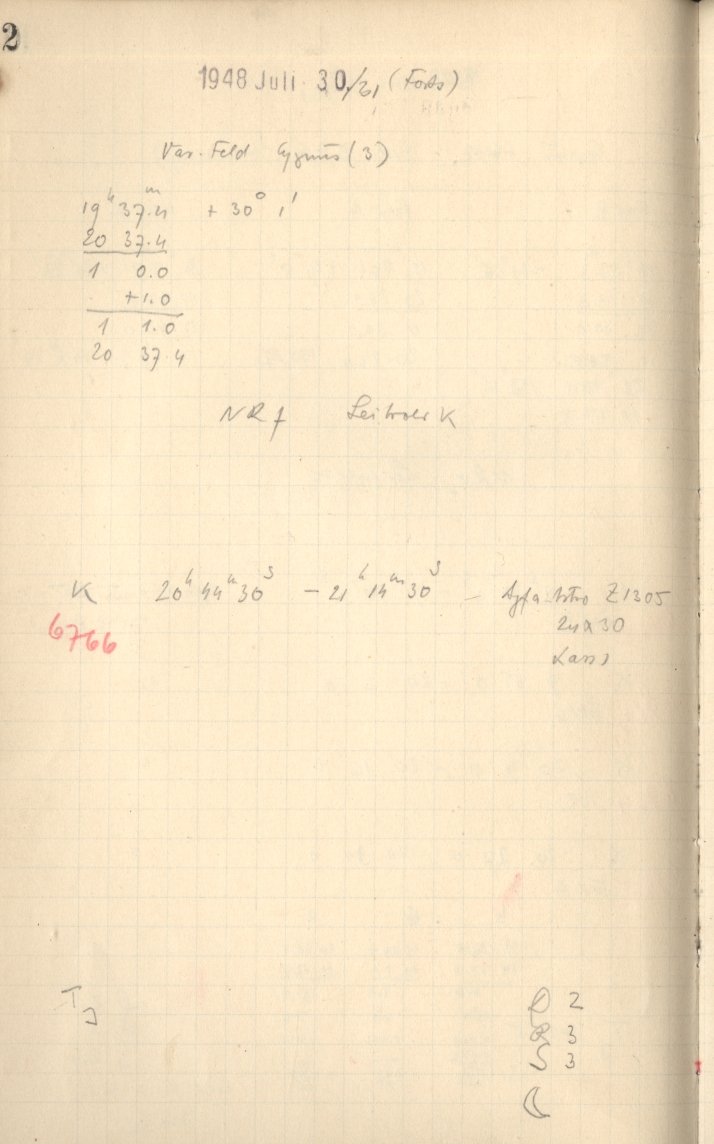 2
1948 Juli 30/31 (Forts)
Var. Feld Cygnus (3)
19ʰ 37.4ᵐ + 30° 1'
20 37.4
1 0.0
+1.0
1 1.0
20 37.4
NR 7 Leitrohr K
K 20ʰ 44ᵐ 30ˢ – 21ʰ 14ᵐ 30ˢ – Agfa Astro Z1305
6766 24x30
D 2
R 3
S 3
☾